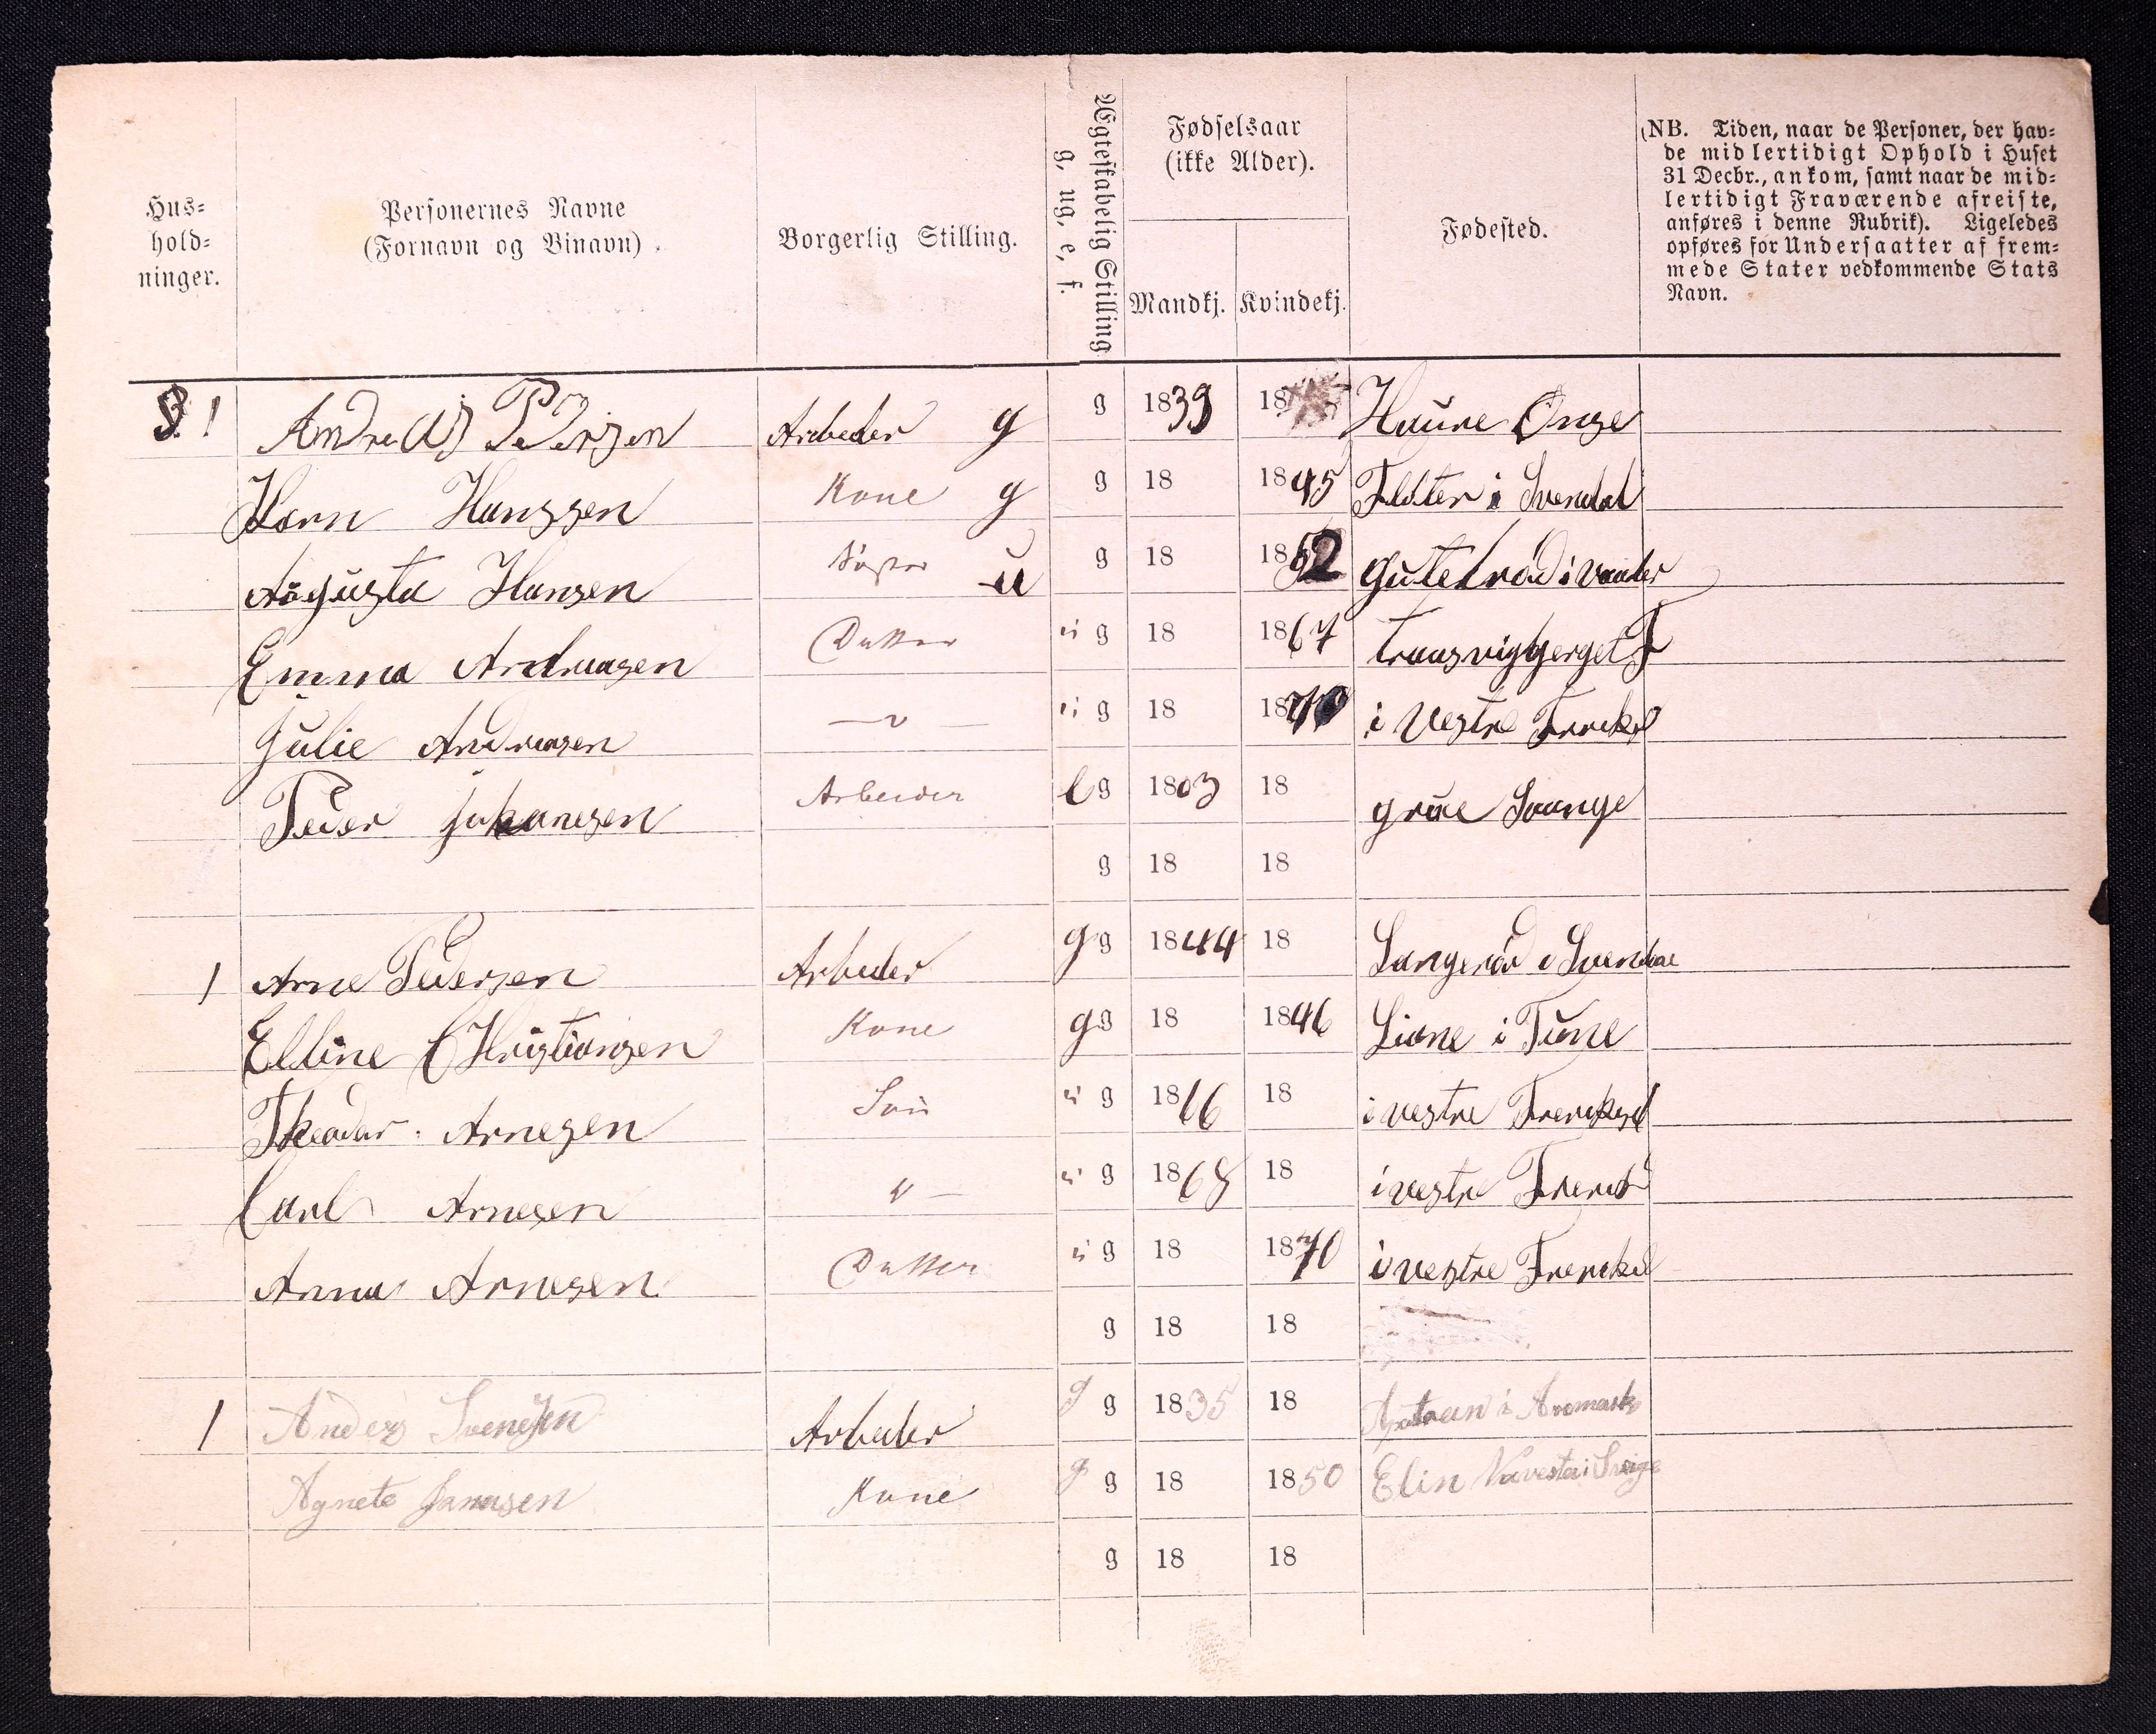 Hus-
hold-
ninger.
Personernes Navne
(Fornavn og Binavn).
Borgerlig Stilling.
Ægteskabelig Stilling
g, ug, e, f.
Fødselsaar
(ikke Alder).
Mandkj. Kvindekj.
Fødested.
(NB. Tiden, naar de Personer, der hav-
de midlertidigt Ophold i Huset
31 Decbr., ankom, samt naar de mid-
lertidigt Fraværende afreiste,
anføres i denne Rubrik). Ligeledes
opføres for Undersaatter af frem-
mede Stater vedkommende Stats
Navn.
1 Andreas Pedersen Arbeder g g 1839 18 Haure
Karn Hanssen Kone g g 18 1845 i Svendal
Augusta Hansen Søster u g 18 1852 i Vaaler
Emma Andreasen Datter ug 18 1867
Julie Andreasen — " — ug 18 1870 i Vestre
Peder Johanesen Arbeider e g 1803 18 grue
g 18 18
1 Arne Pedersen Arbeder g g 1844 18 Langerød i
Elline Christiansen Kone g g 18 1846 i Tune
Theodor Arnesen Søn u g 1866 18 i vestre
Carl Arnesen " — u g 1868 18 i vestre
Anna Arnesen Datter u g 18 1870 i vestre
g 18 18
1 Anders Svensen Arbeder g g 1835 18 i Aremark
Agnete Jansen Kone g g 18 1850 Elin
g 18 18